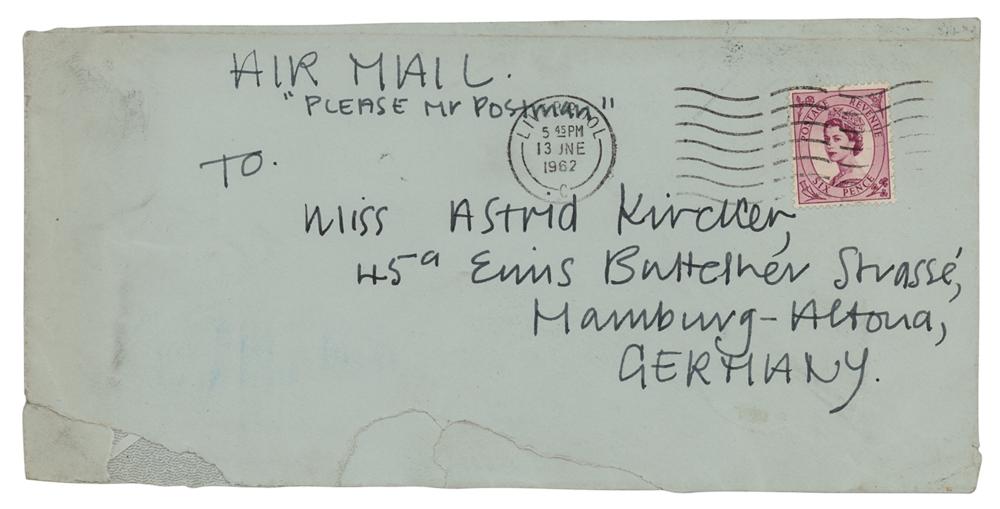 AIR MAIL.
"PLEASE Mr Postman"
LIVERPOOL
5 45 PM
13 JNE
1962
C
POSTAGE REVENUE
SIX PENCE
TO.
Miss Astrid Kircher,
45a Eims Büttelhér Strassé,
Hamburg-Altona,
GERMANY.